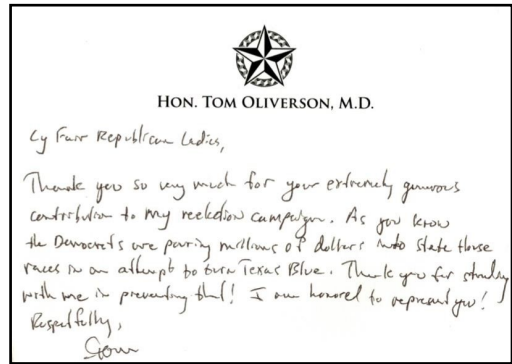 HON. TOM OLIVERSON, M.D.
Cy Fair Republican Ladies,
Thank you so very much for your extremely generous
contribution to my reelection campaign. As you know
the Democrats are pouring millions of dollars into State House
races in an attempt to turn Texas Blue. Thank you for standing
with me in preventing that! I am honored to represent you!
Respectfully,
Tom